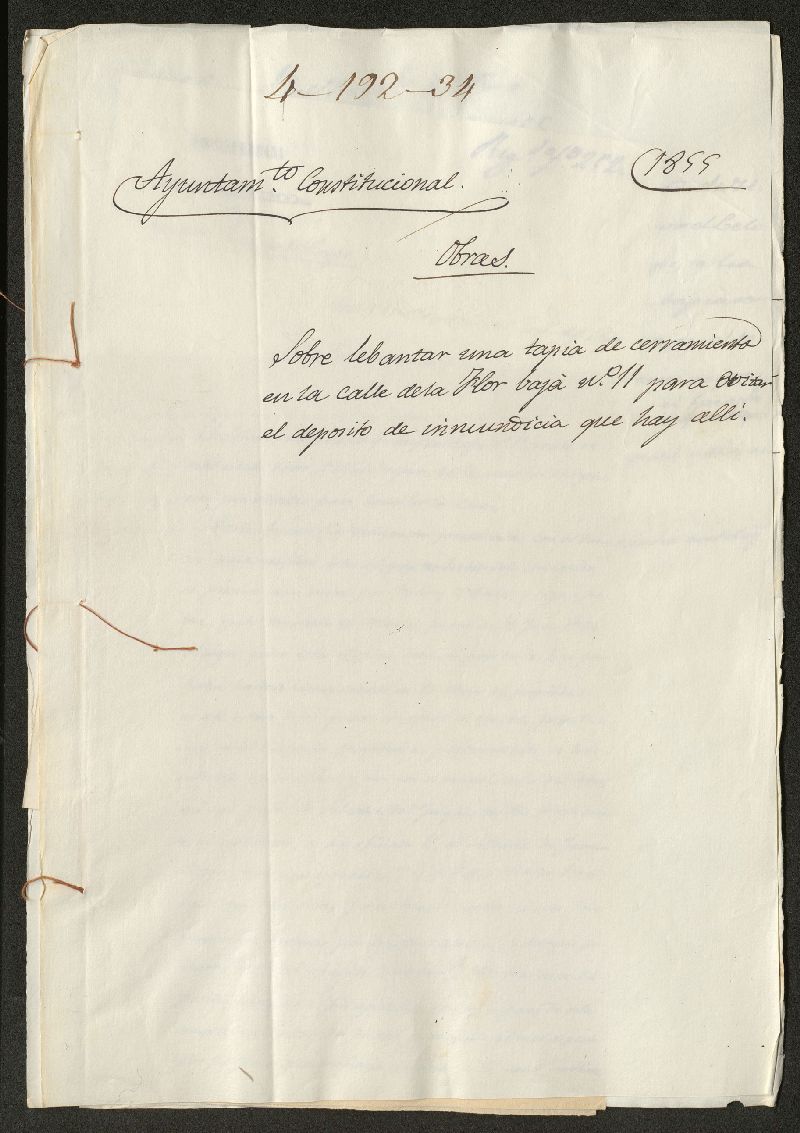 4-192-34
1855
Ayuntam.to Constitucional.
Obras.
Sobre lebantar una tapia de cerramiento
en la calle dela Flor baja n.º 11 para evitar
el deposito de inmundicia que hay alli.